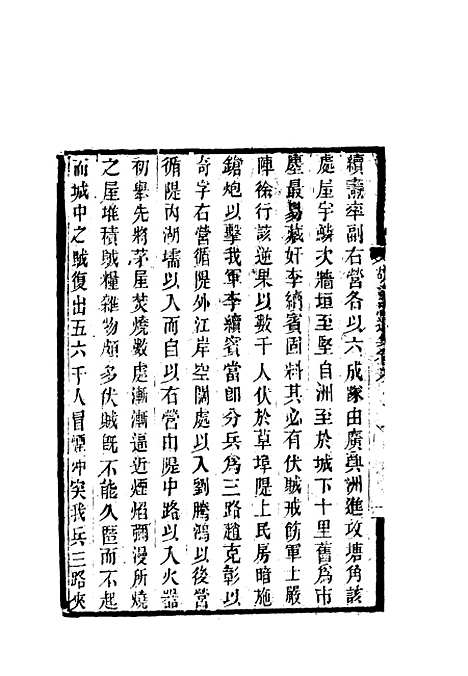 續燾率副右營各以六成隊由廣興洲進攻塘角該
處屋宇鱗次牆垣至堅自洲至於城下十里舊爲市
塵最易藏奸李續賓固料其必有伏賊戒飭軍士嚴
陣徐行該逆果以數千人伏於草埠隄上民房暗施
鎗炮以擊我軍李續賓當卽分兵爲三路趙克彰以
奇字右營循隄外江岸空闊處以入劉騰鴻以後營
循隄內湖壖以入而自以右營由隄中路以入火器
初舉先將茅屋焚燒數處漸漸逼近煙焰彌漫所燒
之屋堆積賊糧雜物頗多伏賊旣不能久匿而不起
而城中之賊復出五六千人冒煙冲突我兵三路夾